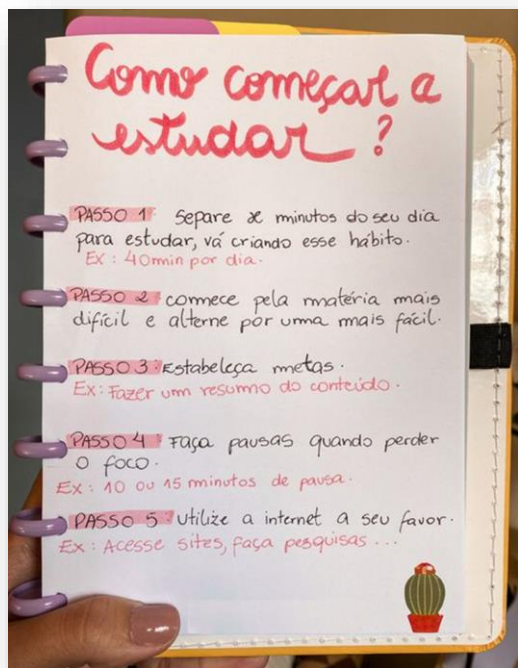 Como começar a
estudar?
PASSO 1: Separe x minutos do seu dia
para estudar, vá criando esse hábito.
EX: 40min por dia.
PASSO 2: comece pela matéria mais
difícil e alterne por uma mais fácil.
PASSO 3: Estabeleça metas.
Ex: Fazer um resumo do conteúdo.
PASSO 4: Faça pausas quando perder
o foco.
Ex: 10 ou 15 minutos de pausa.
PASSO 5: Utilize a internet a seu favor.
Ex: Acesse sites, faça pesquisas...